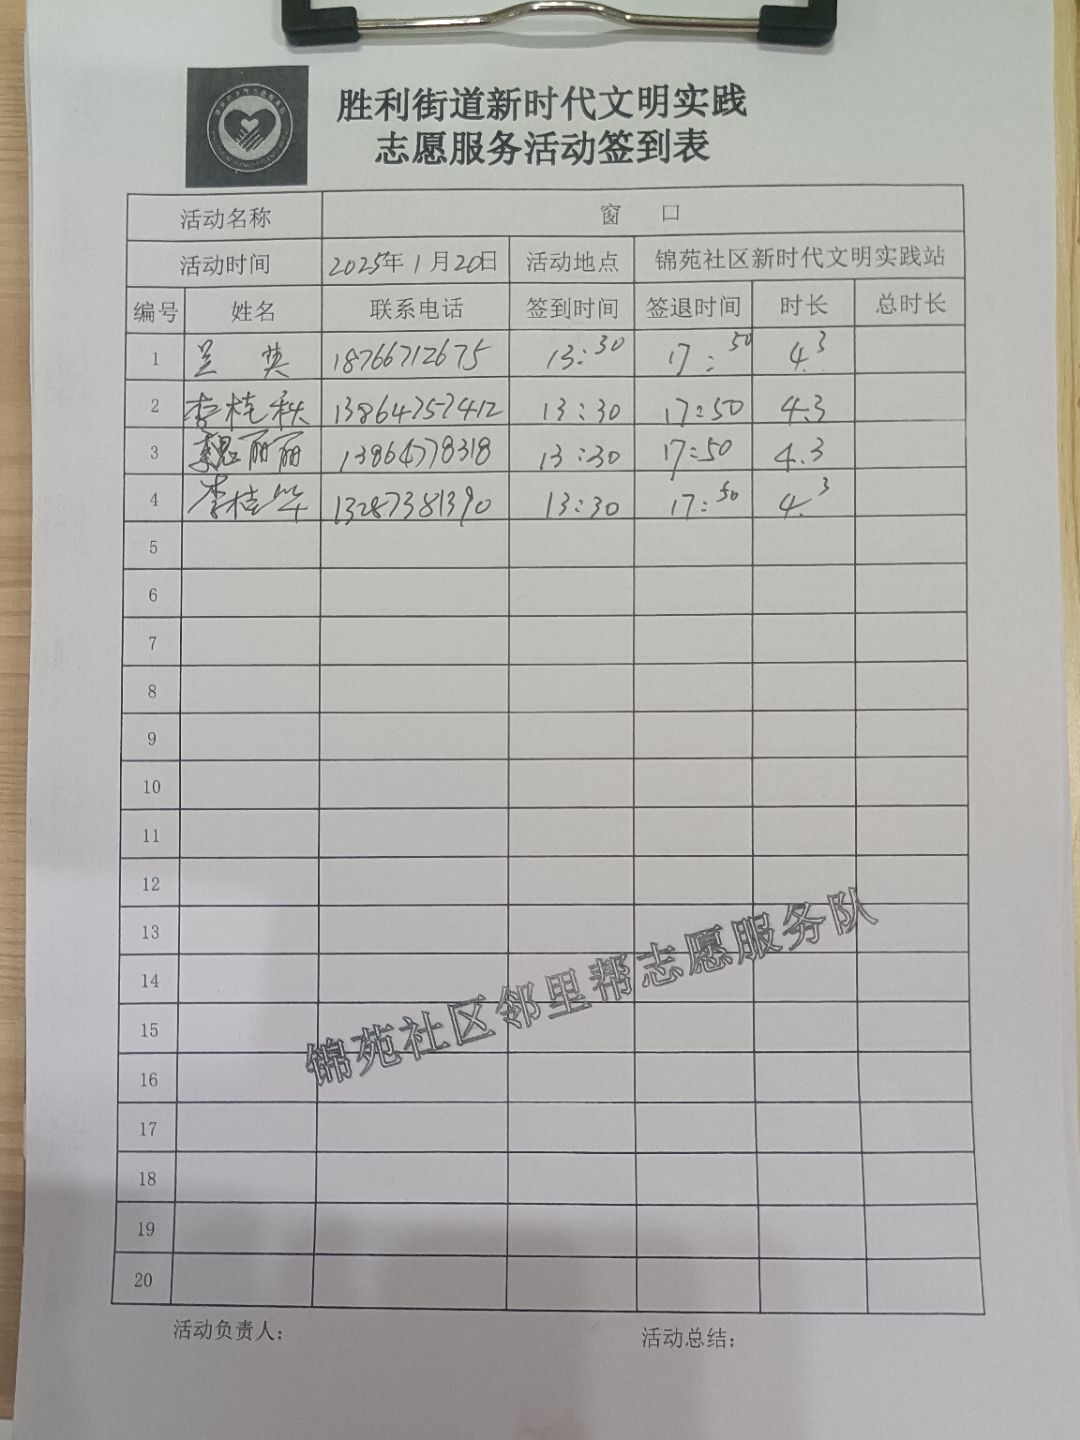 胜利街道新时代文明实践
志愿服务活动签到表
活动名称 窗 口
活动时间 2025年1月20日 活动地点 锦苑社区新时代文明实践站
编号 姓名 联系电话 签到时间 签退时间 时长 总时长
1 吴英 18766712675 13:30 17:50 4.3
2 李桂秋 13864757412 13:30 17:50 4.3
3 魏丽丽 13864778318 13:30 17:50 4.3
4 李桂华 13287381390 13:30 17:50 4.3
5
6
7
8
9
10
11
12
13
14
15
16
17
18
19
20
锦苑社区邻里帮志愿服务队
活动负责人： 活动总结：